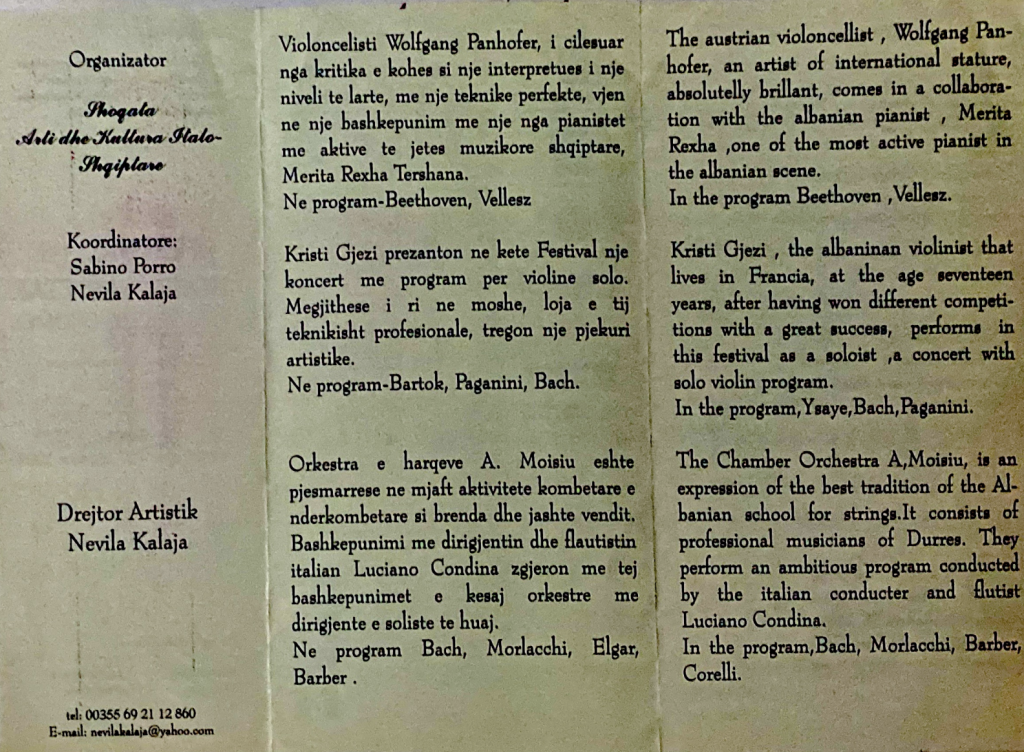 Organizator
Shoqata
Arti dhe Kultura Italo-
Shqiptare
Koordinatore:
Sabino Porro
Nevila Kalaja
Drejtor Artistik
Nevila Kalaja
tel: 00355 69 21 12 860
E-mail: nevilakalaja@yahoo.com
Violoncelisti Wolfgang Panhofer, i cilesuar
nga kritika e kohes si nje interpretues i nje
niveli te larte, me nje teknike perfekte, vjen
ne nje bashkepunim me nje nga pianistet
me aktive te jetes muzikore shqiptare,
Merita Rexha Tershana.
Ne program-Beethoven, Vellesz
Kristi Gjezi prezanton ne kete Festival nje
koncert me program per violine solo.
Megjithese i ri ne moshe, loja e tij
teknikisht profesionale, tregon nje pjekuri
artistike.
Ne program-Bartok, Paganini, Bach.
Orkestra e harqeve A. Moisiu eshte
pjesmarrese ne mjaft aktivitete kombetare e
nderkombetare si brenda dhe jashte vendit.
Bashkepunimi me dirigjentin dhe flautistin
italian Luciano Condina zgjeron me tej
bashkepunimet e kesaj orkestre me
dirigjente e soliste te huaj.
Ne program Bach, Morlacchi, Elgar,
Barber .
The austrian violoncellist , Wolfgang Pan-
hofer, an artist of international stature,
absolutelly brillant, comes in a collabora-
tion with the albanian pianist , Merita
Rexha ,one of the most active pianist in
the albanian scene.
In the program Beethoven ,Vellesz.
Kristi Gjezi , the albaninan violinist that
lives in Francia, at the age seventeen
years, after having won different competi-
tions with a great success, performs in
this festival as a soloist ,a concert with
solo violin program.
In the program,Ysaye,Bach,Paganini.
The Chamber Orchestra A,Moisiu, is an
expression of the best tradition of the Al-
banian school for strings.It consists of
professional musicians of Durres. They
perform an ambitious program conducted
by the italian conducter and flutist
Luciano Condina.
In the program,Bach, Morlacchi, Barber,
Corelli.